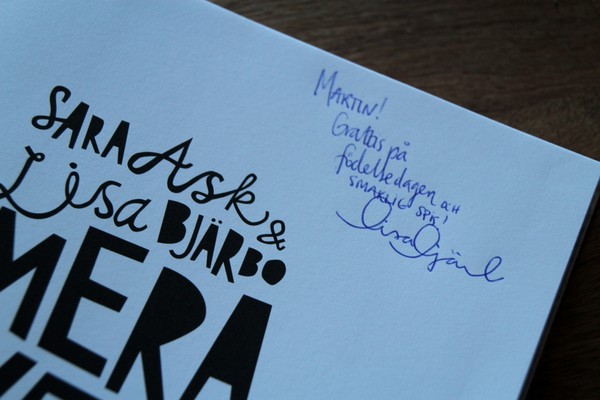 SARA Ask
Lisa BJÄRBO
&
MERA
MARTIN!
Grattis på
födelsedagen och
SMAKLIG SPIS!